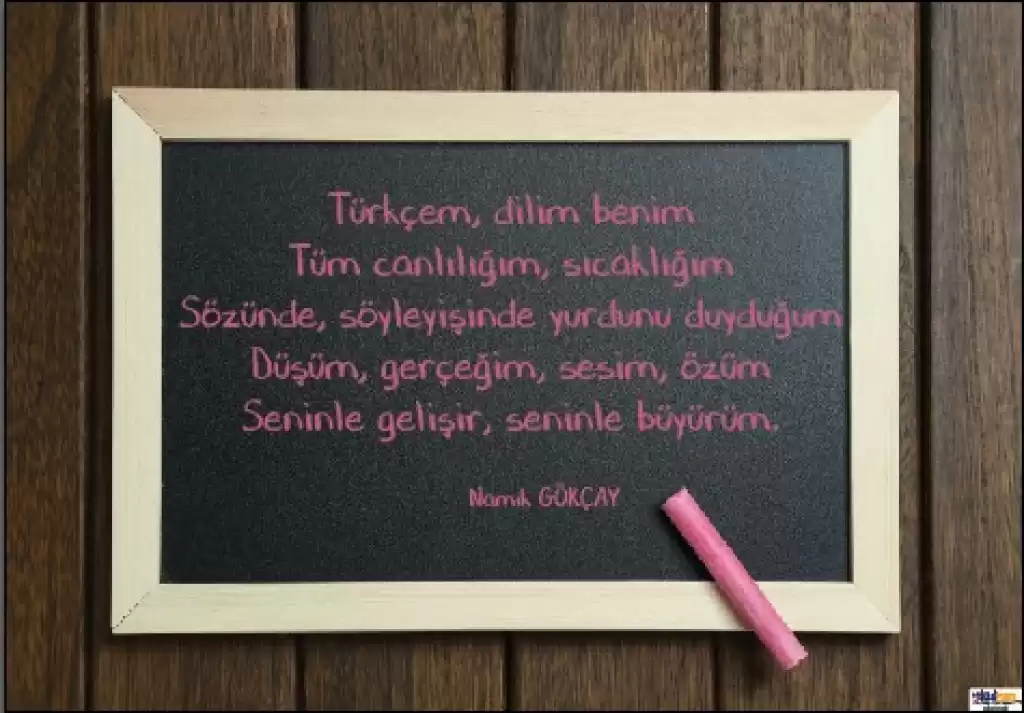 Türkçem, dilim benim
Tüm canlılığım, sıcaklığım
Sözünde, söyleyişinde yurdunu duyduğum
Düşüm, gerçeğim, sesim, özüm
Seninle gelişir, seninle büyürüm.
Namık GÖKÇAY